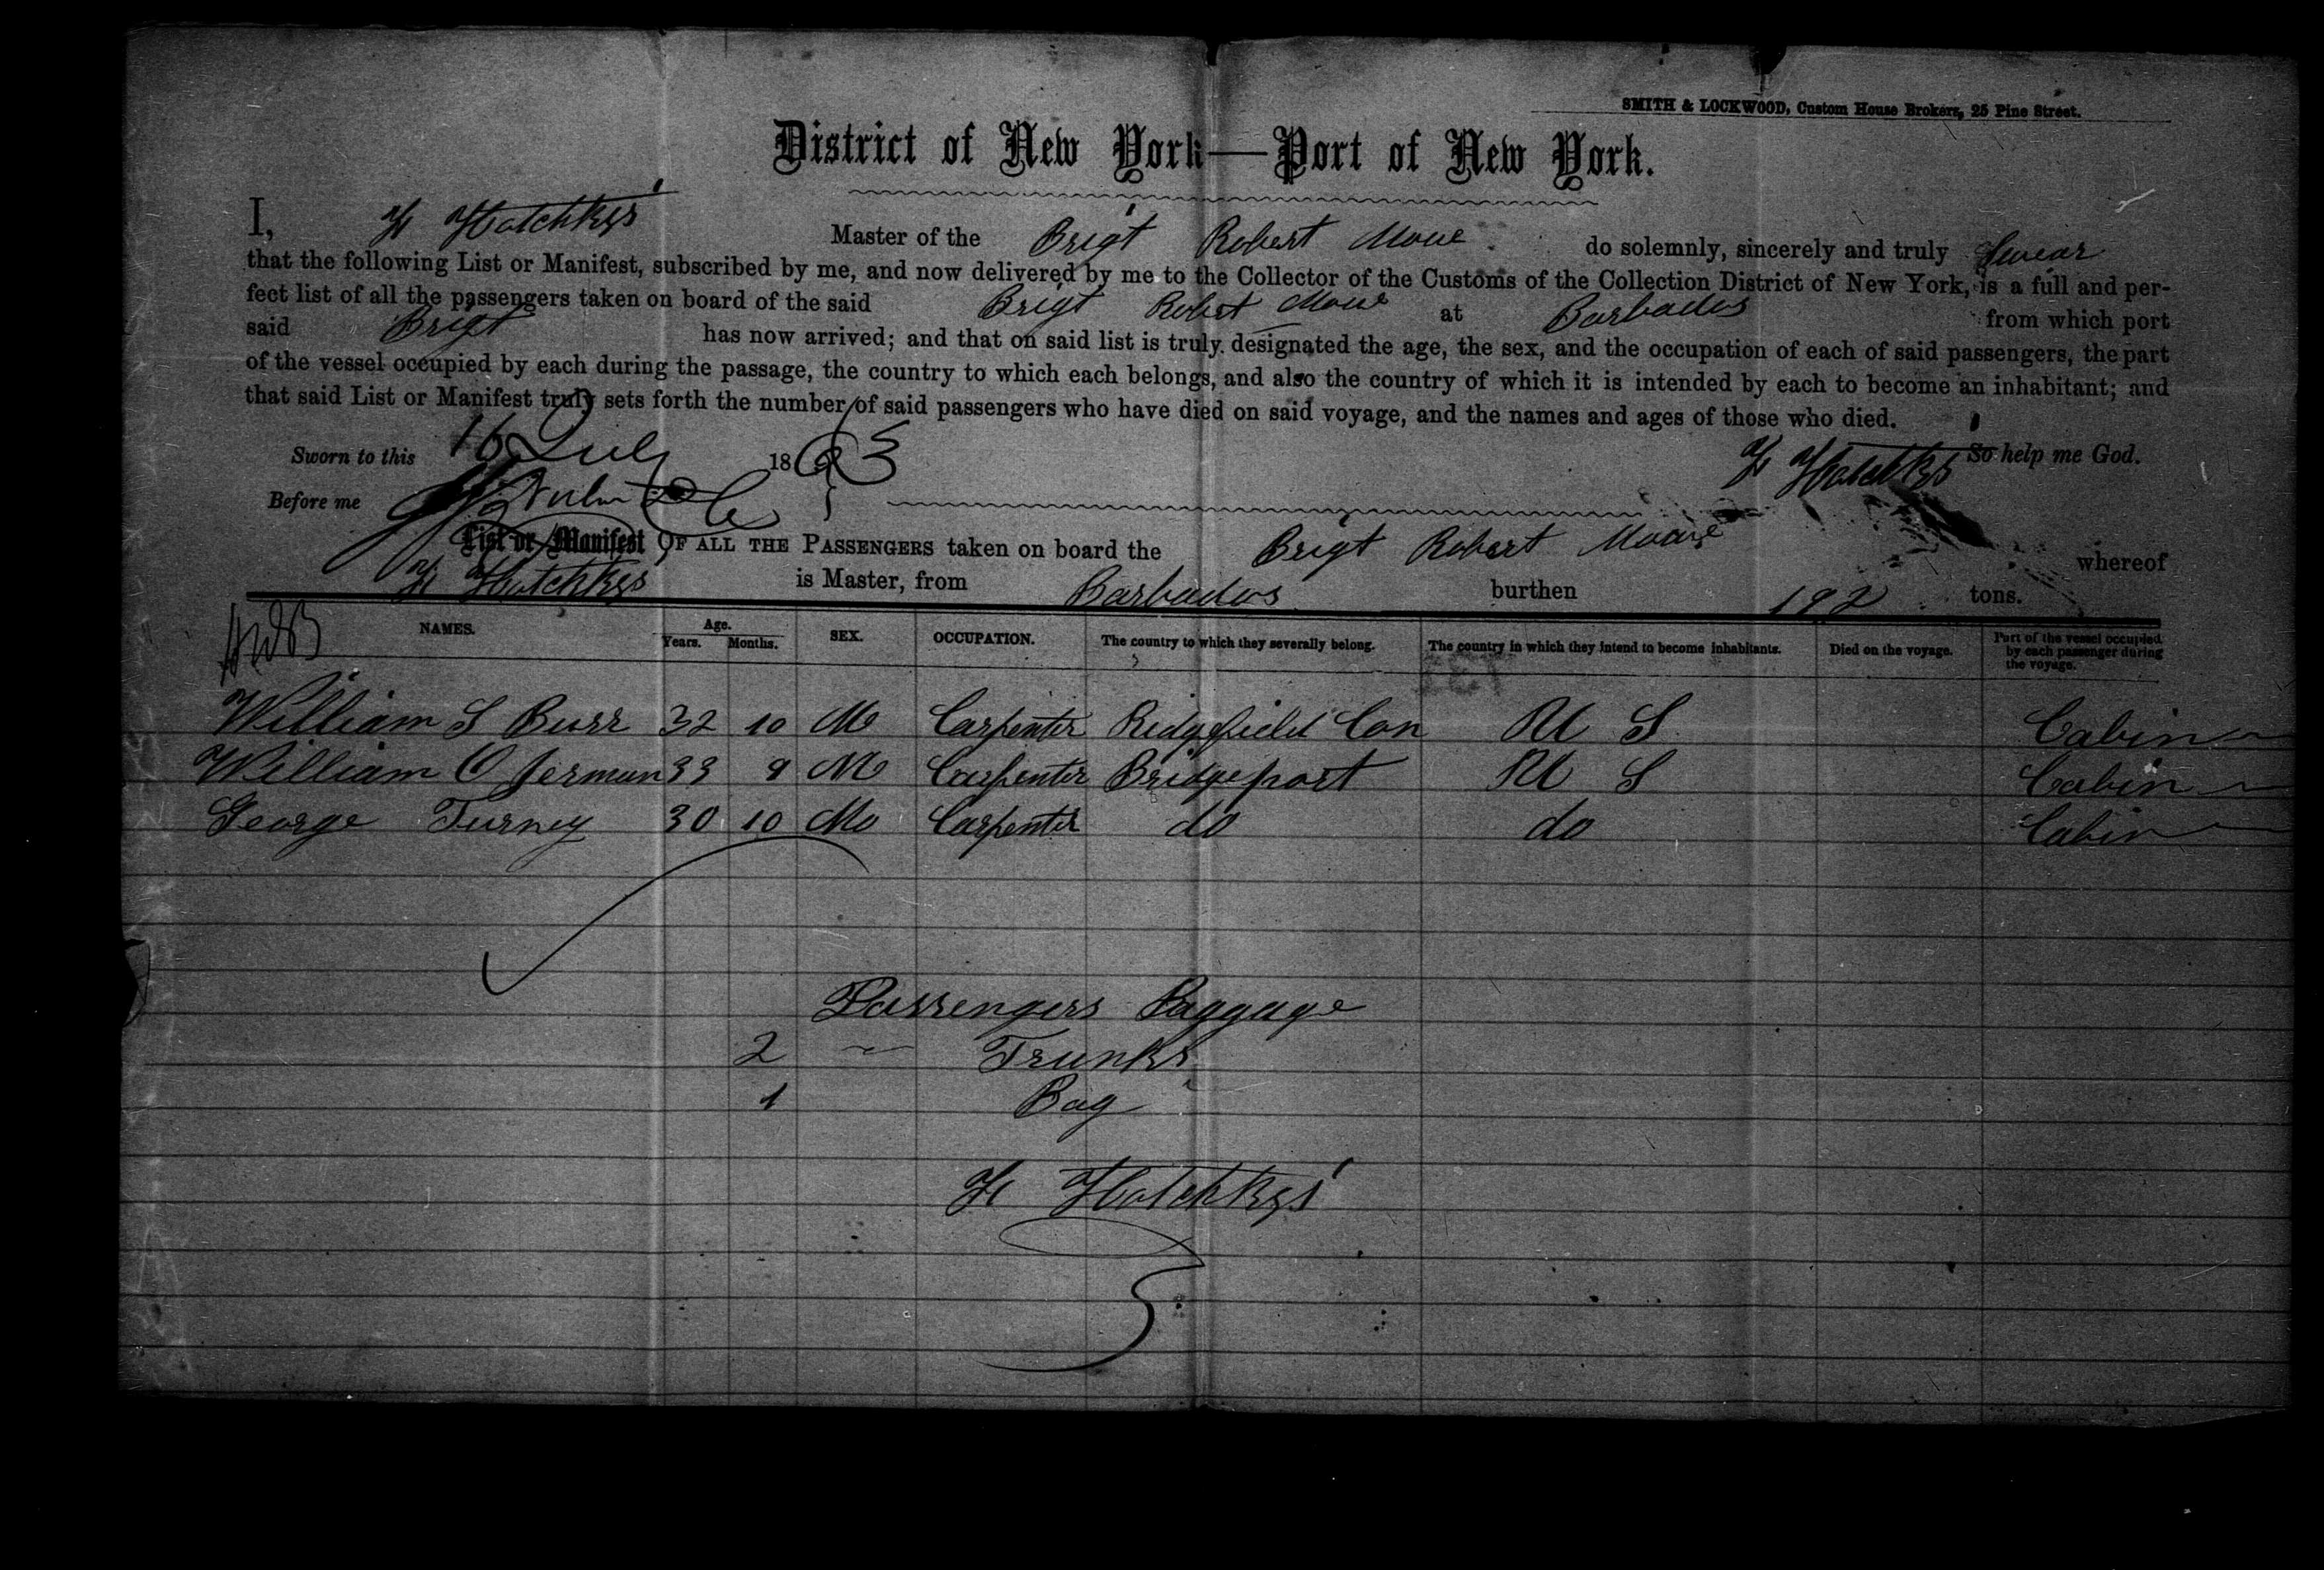 SMITH & LOCKWOOD, Custom House Brokers, 25 Pine Street.
District of New York—Port of New York.
I, H Hotchkiss Master of the Brigt Robert Mowe do solemnly, sincerely and truly Swear
that the following List or Manifest, subscribed by me, and now delivered by me to the Collector of the Customs of the Collection District of New York, is a full and per-
fect list of all the passengers taken on board of the said Brigt Robert Mowe at Barbados from which port
said Brigt has now arrived; and that on said list is truly designated the age, the sex, and the occupation of each of said passengers, the part
of the vessel occupied by each during the passage, the country to which each belongs, and also the country of which it is intended by each to become an inhabitant; and
that said List or Manifest truly sets forth the number of said passengers who have died on said voyage, and the names and ages of those who died.
Sworn to this 16 July 1863 H Hotchkiss So help me God.
Before me
List or Manifest OF ALL THE PASSENGERS taken on board the Brigt Robert Mowe whereof
H Hotchkiss is Master, from Barbados burthen 192 tons.
NAMES. Age. Years. Months. SEX. OCCUPATION. The country to which they severally belong. The country in which they intend to become inhabitants. Died on the voyage. Part of the vessel occupied by each passenger during the voyage.
William S Burr 32 10 M Carpenter Ridgefield Con U S Cabin
William O Jerman 33 9 M Carpenter Bridgeport U S Cabin
George Turney 30 10 M Carpenter do do Cabin
Passengers Baggage
2 Trunks
1 Bag
H Hotchkiss